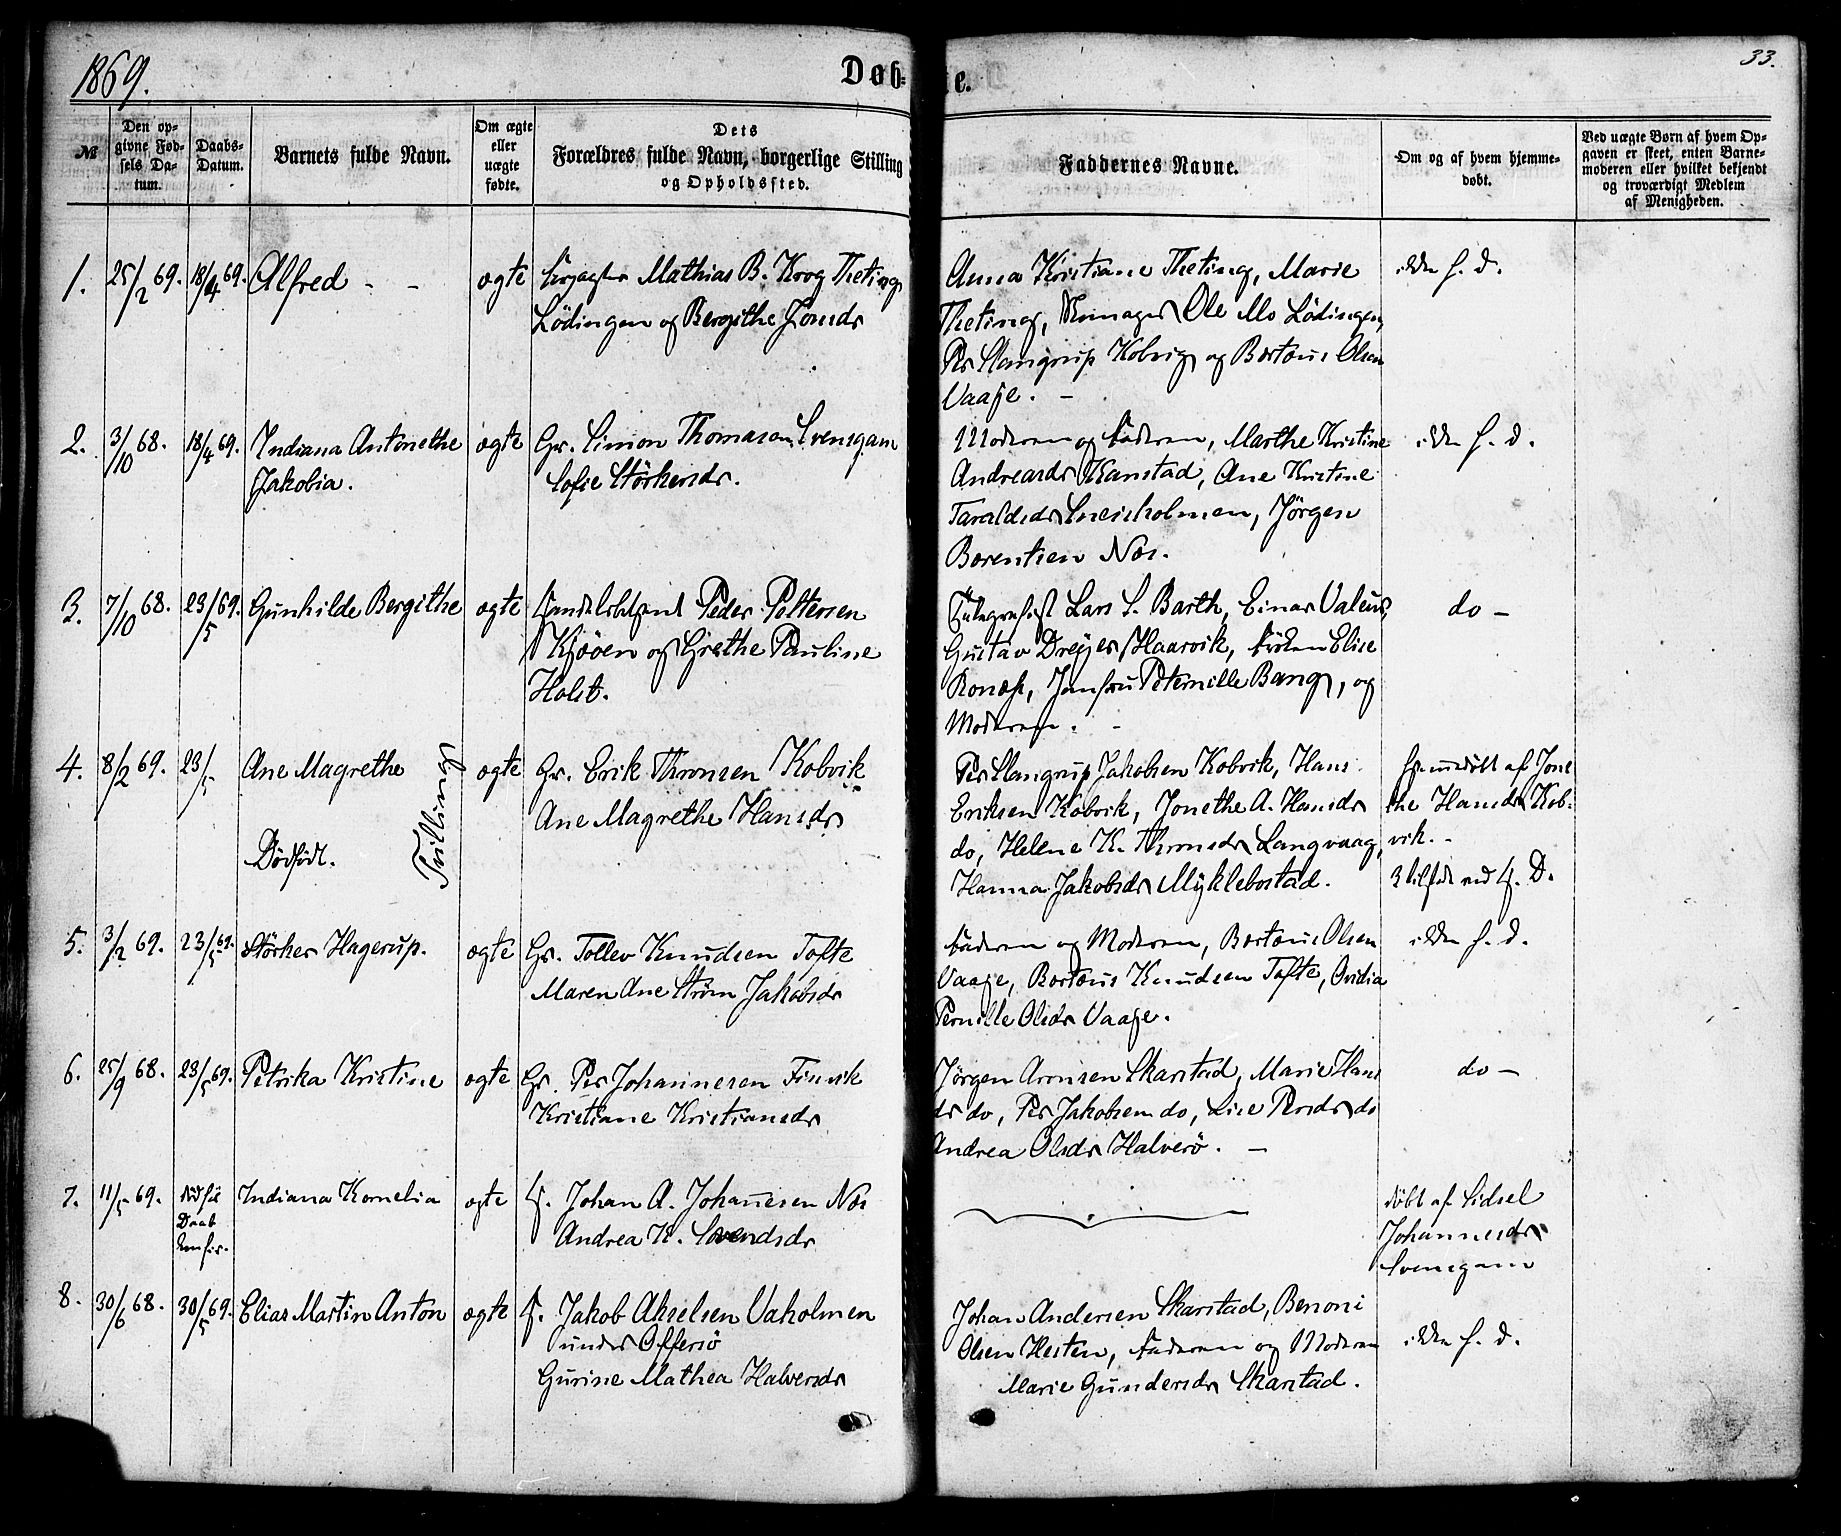 1869.
Døb-
te.
33.
№
Den op-
givne Fød-
sels Da-
tum.
Daabs-
Datum.
Barnets fulde Navn.
Om ægte
eller
uægte
fødte.
Dets
Forældres fulde Navn, borgerlige Stilling
og Opholdssted.
Faddernes Navne.
Om og af hvem hjemme-
døbt.
Ved uægte Børn af hvem Op-
gaven er skeet, enten Barne-
moderen eller hvilket bekjendt
og troværdigt Medlem
af Menigheden.
1. 25/2 69. 18/4 69. Alfred - - ægte Mathias B. Krog Theting
Lødingen og Bergithe Jonsdr
Anna Kristiane Theting, Marie
Theting, Ole Mo Lødingen,
Per Slangrup Kobvig og Bortæus Olsen
Vaaje. -
ikke h. d.
2. 3/10 68. 18/4 69. Indiana Antonethe
Jakobia.
ægte Gr. Simon Thomasen Svensgam
Sofie Størkersdr.
Moderen og Faderen, Marthe Kristine
Andreasdr Kanstad, Ane Kristine
Taraldsdr Sneisholmen, Jørgen
Borentsen Næs.
ikke h. d.
3. 7/10 68. 23/5 69. Gunhilde Bergithe ægte Handelsbetjent Peder Pettersen
Kjøøen og Grethe Pauline
Holst.
Telegrafist Lars S. Barth, Einar Valeur,
Gustav Dreyer Haarvik, Frøken Elise
Ronæss, Jomfru Peternille Bang, og
Moderen. -
do -
4. 8/2 69. 23/5 Ane Magrethe
Dødfødt.
Tvillinger
ægte Gr. Erik Thronsen Kobvik
Ane Magrethe Hansdr
Per Slangrup Jakobsen Kobvik, Hans
Eriksen Kobvik, Jonethe A. Hansdr
do, Helene K. Thronsdr Langvaag,
Hanna Jakobsdr Myklebostad.
Hjemmedøbt af Jone
the Hansdr Kob-
vik. -
tilstede ved H. D.
5. 3/2 69. 23/5 69. Størker Hagerup. ægte Gr. Tollev Knudsen Tofte
Maren Ane Strøm Jakobsdr
Faderen og Moderen, Bortæus Olsen
Vaaje, Bortæus Knudsen Tofte, Ovidia
Pernille Olsdr Vaaje.
ikke h. d.
6. 25/9 68. 23/5 69. Petrika Kristine ægte Gr. Per Johannesen Finvik
Kristiane Kristiansdr
Jørgen Aronsen Skarstad, Marie Hans
dr do, Per Jakobsen do, Lise Persdr do
Andrea Olsdr Halverö. -
do -
7. 11/5 69. Daab
Indiana Kornelia ægte I. Johan A. Johanesen Næs
Andrea K. Svendsdr
døbt af Sidsel
Johannesdr
Svensgam
8. 30/6 68. 30/5 69. Elias Martin Anton ægte I. Jakob Akselsen Vaholmen
under Offersö
Gurine Mathea Halversdr
Johan Andersen Skarstad, Benoni
Olsen Hesten, Faderen og Moderen
Marie Gundersdr Skarstad.
ikke h. d.